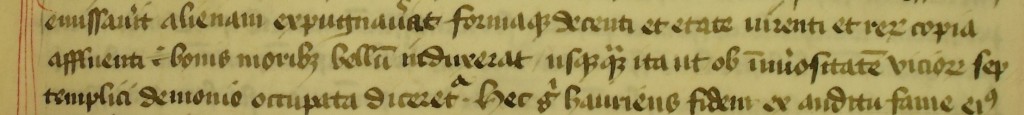 emissarit alienam expugnauerat formaqꝫ decenti et etate uirenti et reꝝ copia
affluenti ⁊ bonis moribꝫ bellū induxerat usqꝫqꝫ ita ut ob ītuositatē vicioꝝ sep
templici demonio occupata diceret᷑ hec gͥ hauriens fidem ex auditu fame eiꝰ